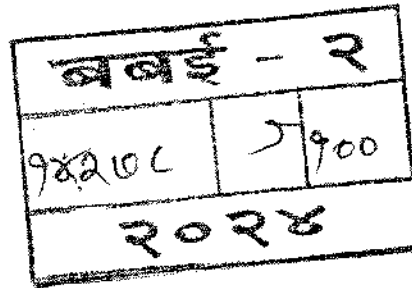 बबई - २
१४२७८ ५ १००
२०२४